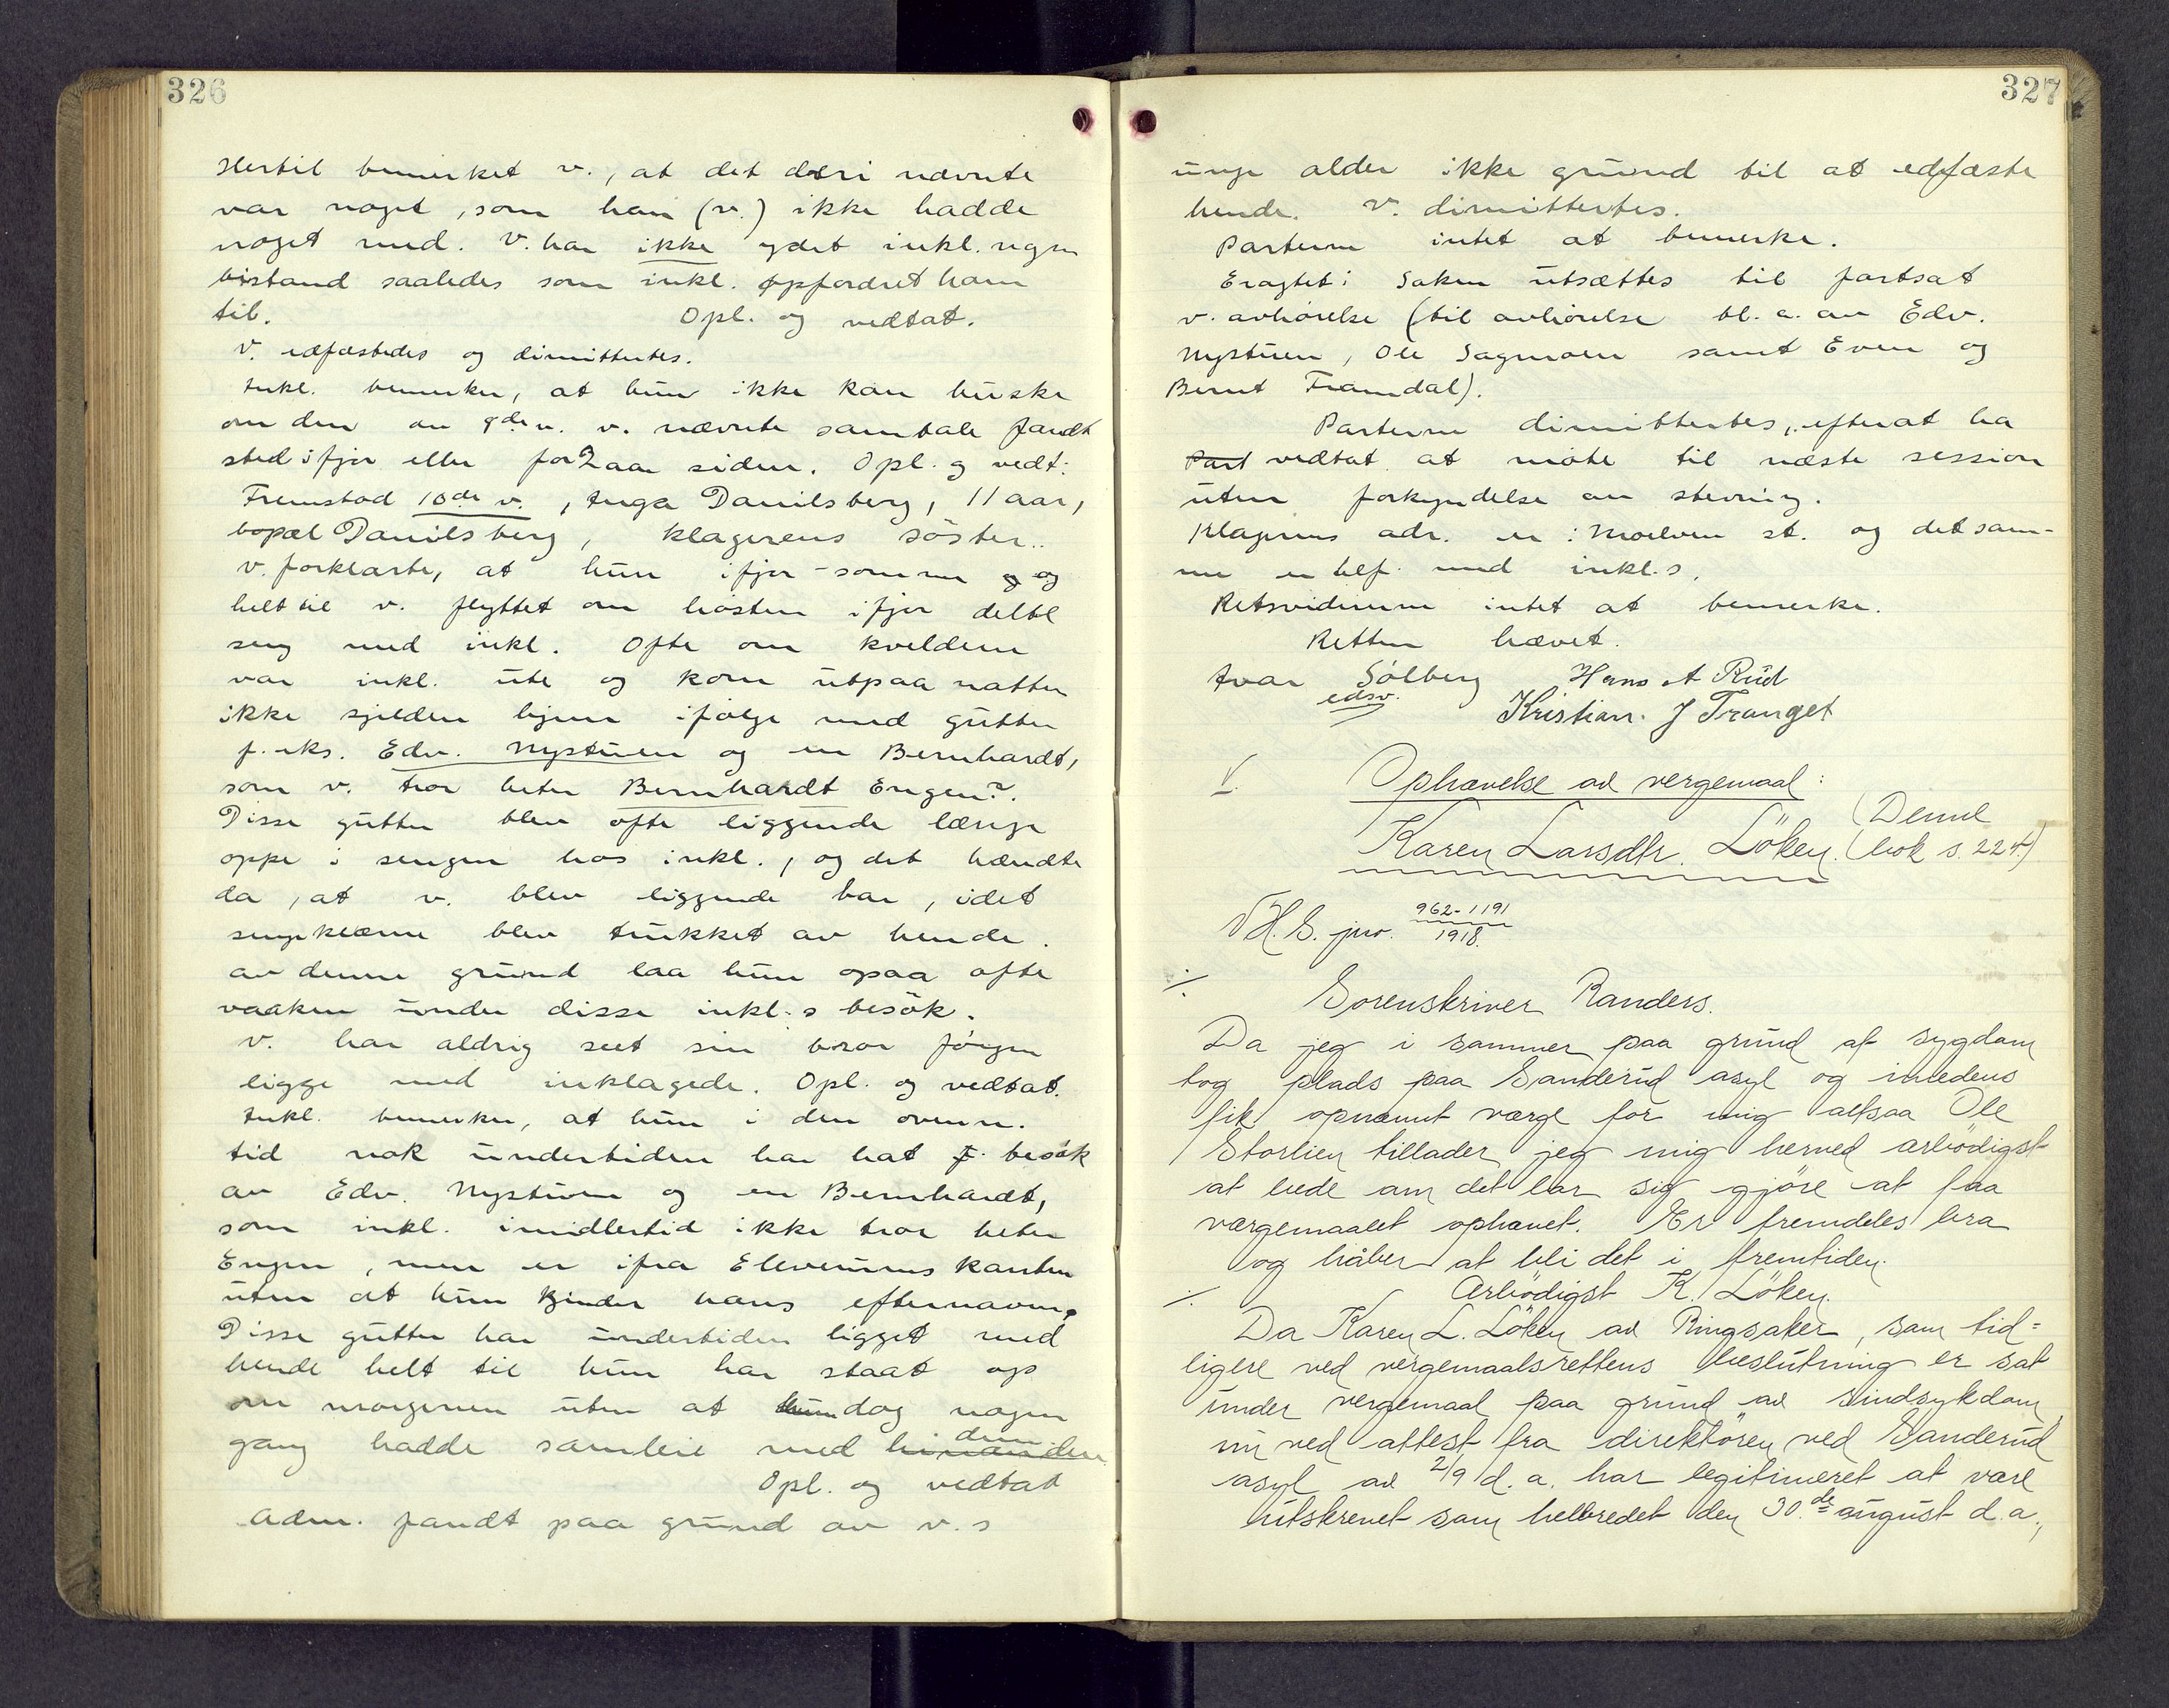 326
Hertil bemerket v., at det deri nævnte
var noget, som han (v.) ikke hadde
noget med. V. har ikke ydet inkl. nogen
bistand saaledes som inkl. opfordret ham
til. Opl. og vedtat.
V. edfæstedes og dimittertes.
Inkl. bemerker, at hun ikke kan huske
om den av 9de v. nævnte samtale fandt
sted ifjor eller for 2 aar siden. Opl. og vedt:
Fremstod 10de v., Inga Danilsberg, 11 aar,
bopæl Danilsberg, klagerens söster..
V. forklarte, at hun ifjor sommer og
helt til v. flyttet om høsten ifjor delte
seng med inkl. Ofte om kveldene
var inkl. ute og kom utpaa natten
ikke sjelden hjem ifølge med gutter
f. eks. Edv. Nystuen og en Bernhardt,
som v. tror heter Bernhardt Engen?.
Disse gutter blev ofte liggende længe
oppe i sengen hos inkl., og det hændte
da, at v. blev liggende bar, idet
sengklærne blev trukket av hende.
av denne grund laa hun ogsaa ofte
vaaken under disse inkl:s besök.
V. har aldrig seet sin bror Jörgen
ligge med inklagede. Opl. og vedtat.
Inkl. bemerker, at hun i den ovenn.
tid nok undertiden har hat besök
av Edv. Nystuen og en Bernhardt,
som inkl. imidlertid ikke tror heter
Engen, men er ifra Elverumskanten
uten at hun kjender hans efternavn.
Disse gutter har undertiden ligget med
hende helt til hun har staat op
om morgenen uten at hun dog nogen
gang hadde samleie med hinanden dem
Opl. og vedtat
Adm. fandt paa grund av v.s
327
unge alder ikke grund til at edfæste
hende. V. dimittertes.
Parterne intet at bemerke.
Eragtet: Saken utsættes til fortsat
v. avhørelse (til avhørelse bl. a. av Edv.
Nystuen, Ole Sagmoen samt Even og
Bernt Framdal).
Parterne dimittertes, efterat ha
Part vedtat at møte til næste session
uten forkyndelse av stevning.
Klagerens adr. er: Moelven st. og det sam-
me er tilf. med inkl.s.
Retsvidnerne intet at bemerke.
Retten hævet.
Ivar Sølberg Hans A Rud
edsv.
Kristian. J Tranget
V. Ophævelse av vergemaal:
Karen Larsdtr. Löken. (Denne
bok s. 224.)
N.H.S. jnr. 962-1191
1918.
./.
Sorenskriver Randers.
Da jeg i sommer paa grund af sygdom
tog plads paa Sanderud asyl og imedens
fik opnævnt værge for mig altsaa Ole
Storlien tillader jeg mig herved ærbödigst
at bede om det lar sig gjöre at faa
værgemaalet ophævet. Er fremdeles bra
og håber at bli det i fremtiden.
Ærbödigst K. Löken.
./.
Da Karen L. Löken av Ringsaker, som tid=
ligere ved vergemaalsrettens beslutning er sat
under vergemaal paa grund av sindsykdom,
nu ved attest fra direktören ved Sanderud
asyl av 2/9 d. a. har legitimeret at være
utskrevet som helbredet den 30.de august d. a.,